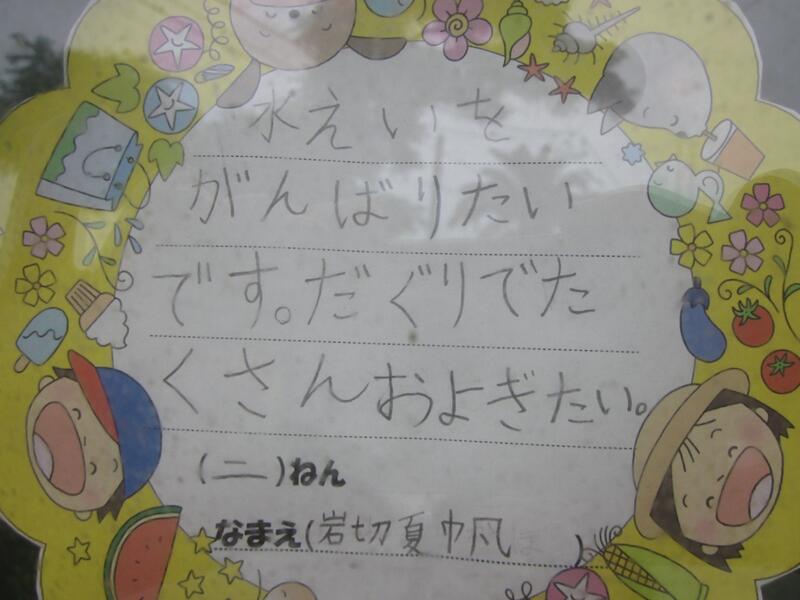 水えいを
がんばりたい
です。だぐりでた
くさんおよぎたい。
(二)ねん
なまえ(岩切夏帆